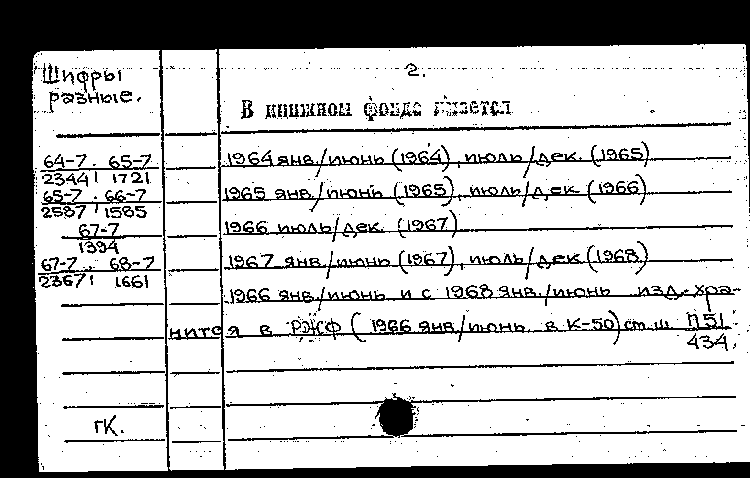 Шифры
разные.
2.
В книжном фонде имеется
64-7; 65-7
2344; 1721
1964 янв./июнь (1964), июль/дек. (1965)
65-7; 66-7
2587; 1585
1965 янв./июнь (1965), июль/дек. (1966)
67-7
1394
1966 июль/дек. (1967)
67-7; 68-7
2367; 1661
1967 янв./июнь (1967), июль/дек. (1968)
1966 янв./июнь и с 1968 янв./июнь изд. хра-
нится в РЖФ (1966 янв./июнь в К-50) ст. ш. П51
434.
ГК.